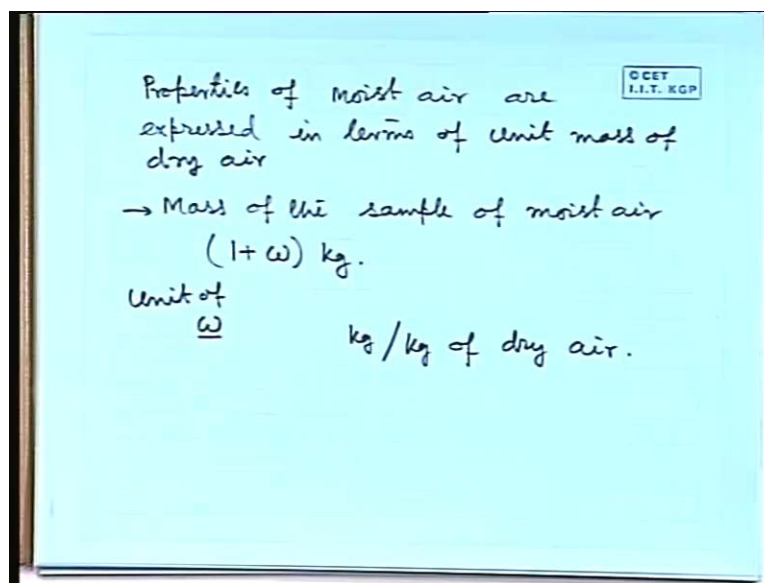 Properties of moist air are
© CET
I.I.T. KGP
expressed in terms of unit mass of
dry air
→ Mass of the sample of moist air
(1+ ω) kg.
unit of
ω
kg/kg of dry air.